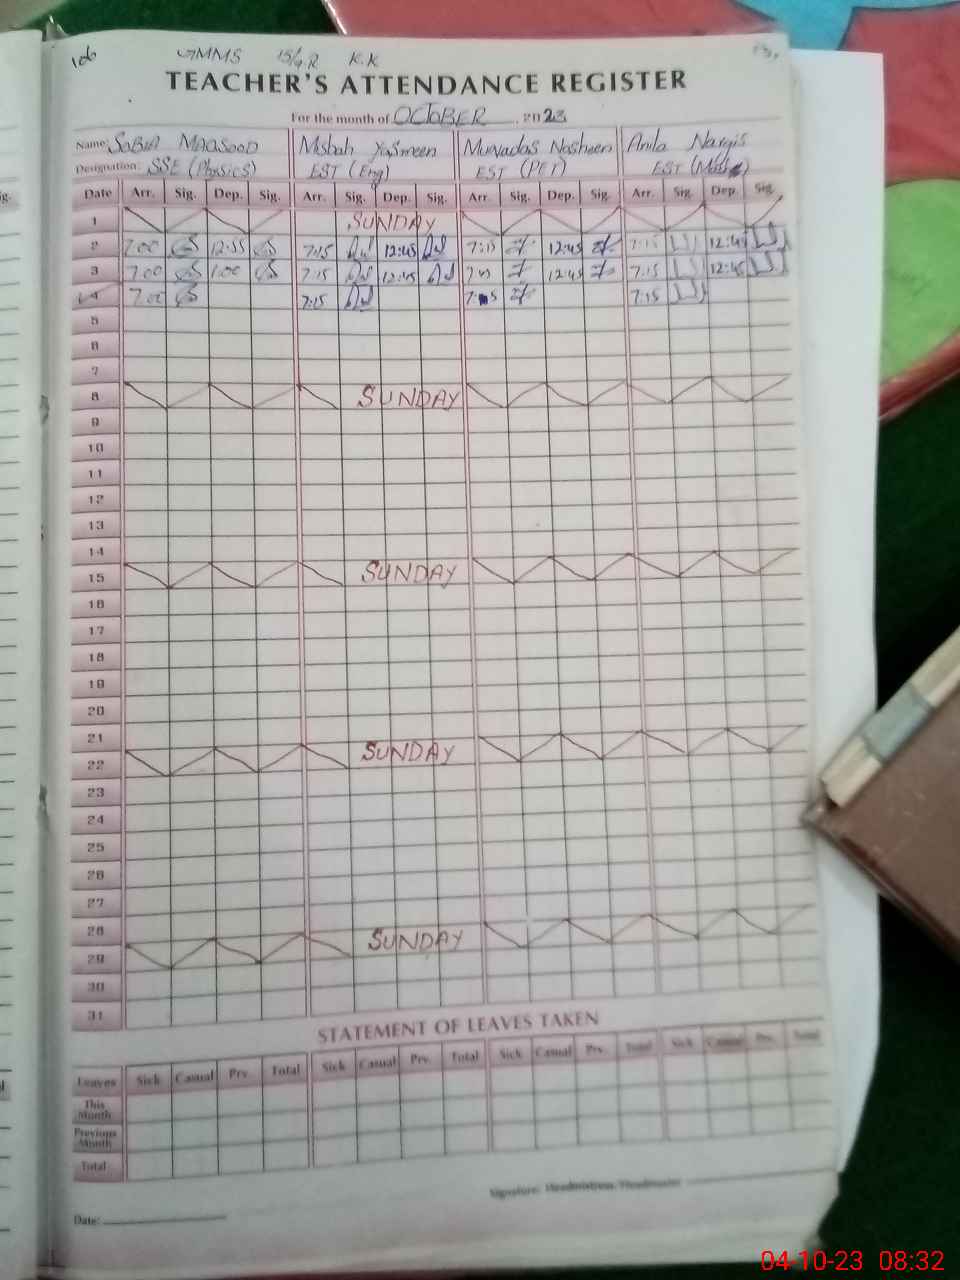 106 GMMS 15/G.R K.K
TEACHER'S ATTENDANCE REGISTER
For the month of OCTOBER, 2023
Name: SOBIA MAQSOOD Misbah Yasmeen Nosheen Anila Nargis
Designation: SSE (Physics) EST (Eng) EST (PET) EST
Date Arr. Sig. Dep. Sig. Arr. Sig. Dep. Sig. Arr. Sig. Dep. Sig. Arr. Sig. Dep. Sig.
1 SUNDAY
2 7.00 12:55 7:15 12:45 7:15 12:45 7:15 12:45
3 7.00 1.00 7:15 12:45 12:45 7.15 12:45
4 7.00 7:15 7:15
5
6
7
8 SUNDAY
9
10
11
12
13
14
15 SUNDAY
16
17
18
19
20
21
22 SUNDAY
23
24
25
26
27
28
29 SUNDAY
30
31
STATEMENT OF LEAVES TAKEN
Leaves Sick Casual Prv. Total Sick Casual Prv. Total Sick Casual Prv. Total Sick Casual Prv. Total
This
Month
Previous
Month
Total
Signature: Headmistress/Headmaster
Date:
04-10-23 08:32